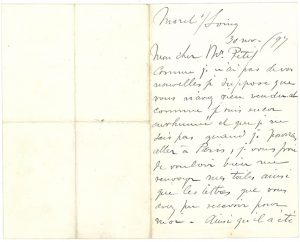 Moret s/ Loing
30 nov. /97
Mon cher Mr. Petit
Comme je n'ai pas de vos
nouvelles je suppose que
vous n'avez rien vendu et
comme je suis encore
souffrant et que je ne
sais pas quand je pourrai
aller à Paris, je vous prie
de vouloir bien me
renvoyer mes toiles ainsi
que les lettres que vous
avez pu recevoir pour
moi. Ainsi qu'il a été